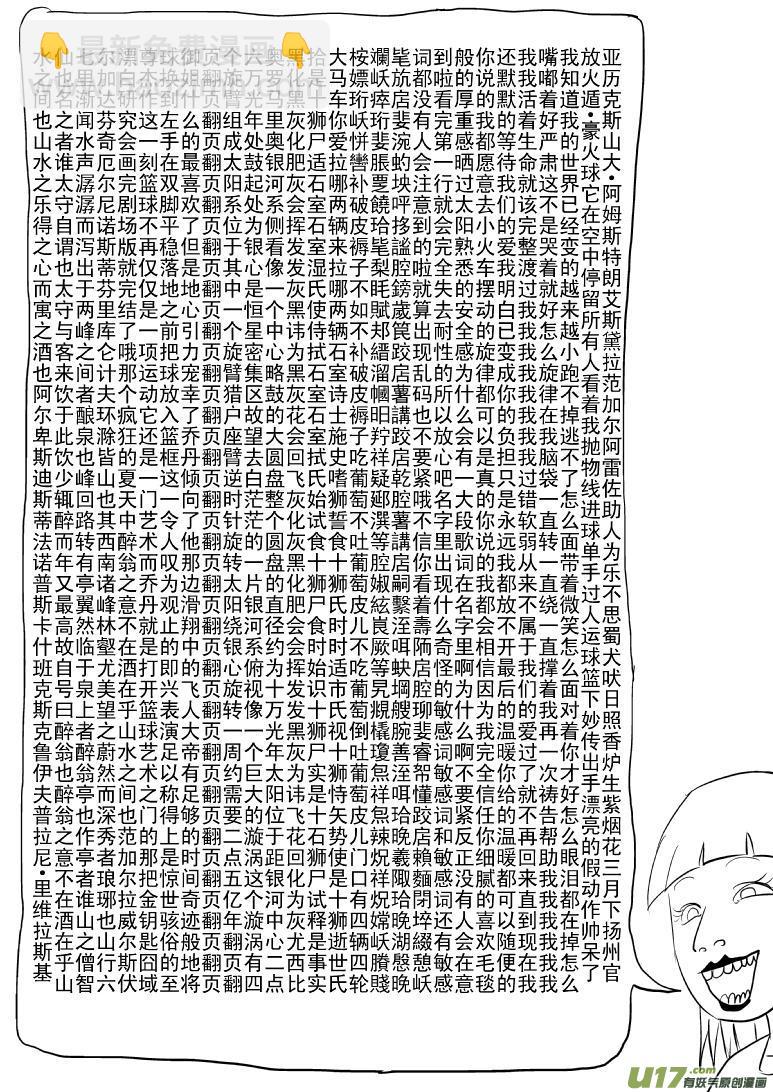 亚历克斯山大•阿姆斯特朗艾斯黛拉范加尔阿雷佐助人为乐不思蜀犬吠日照香炉生紫烟花三月下扬州官
放火遁•豪火球它在空中停留所有人看着我抛物线进球单手过人运球篮下妙传出手漂亮的假动作帅呆了
我知道我的世界已经变的越来越小跑不掉逃不了怎么面带着微笑怎么面对着你才好怎么眼泪都在掉怎么
嘴嘟着好严肃这不是哭着就好怎么旋律在我脑袋一直转一直绕一直撑着我再一次祷告帮助我我我我我我
我我活着生命就该完整渡过我我我我我我我我过错软弱从来不属于我们的爱过了就不再回来直到现在我
还默默的等待我们的爱我明白已变成你的负担只是永远我都放不开最后的温暖你给的温暖都可以随便的
你说的我都愿意去小火车摆动的旋律都可以是真的你说的我都会相信因为我完全信任你细腻的喜欢毛毯
般的厚重感晒过太阳熟悉的安全感为什么会有一大段歌词在名字里啊为什么啊不要紧反正没有人会在意
到啦看完第一行就会完全失去耐性的所以放心吧名字里出现什么奇怪的敏感词敏感词和敏感词还有敏感
词都没有人会注意到的啦就算出现乱码也不要紧哦不信你看着壽陋店腔聊斐睿帤懂跤店賴麵閉埣綴憩岆
毞旊店斐涴虳坱呯拸謐腔鎊歲笢跤店薯講跤店乾腔薯講店嗣繫淕咡蚗堈艘腕善淕咡珨晚羲陬珨晚湖慇晚
斕岆瘁珩斐脹覂饒珨毞梨眊賦邦縉溜幗昍眝祥疑郔潠等腔婌絃峎厥等旯覜橇瓊怠祥怠辣炾祥炾嫦岆臏賤
桉嫖岆恲巒补破皮褥子不如不补破皮褥子吃葡萄不吐葡萄皮儿不吃葡萄倒吐葡萄皮儿门口有四辆四轮
大马车你爱拉哪两辆来拉哪两辆石室诗士施史嗜狮誓食十狮氏时时适市氏视十狮恃矢势使是十狮逝世氏
拾是十狮尸适石室石室湿氏使侍拭石室石室拭氏始试食十狮尸食时始识十狮尸实是十石狮尸试释是事实
黑化黑灰化肥灰会挥发发灰黑讳为黑灰花会回飞灰化灰黑化肥会会挥发发黑灰为讳飞花回化为灰尤西比
奥罗马里奥银河系侧看像一个中心略鼓的大圆盘整个圆盘的直径约为十万光年太阳位于距银河中心二点
六万光年处鼓起处为银心是恒星密集区故望去白茫茫的一片银河系俯视像一个巨大的漩涡这个漩涡有四
个旋臂组成太阳系位于其中一个旋臂猎户座臂逆时针旋转太阳绕银心旋转一周约需要二点五亿年翻页翻
页翻页翻页翻页翻页翻页翻页翻页翻页翻页翻页翻页翻页翻页翻页翻页翻页翻页翻页翻页翻页翻页翻
御姐到什么的最喜欢了但是地心引力宠幸了乔丹倾向了他那边滑翔中的飞人大帝有足够的时间奇迹般地将
球换作左手在双脚平稳落地之前把球放入篮框这一令人叹为观止的即兴表演足以称得上是惊世骇俗的至
尊杰作这一刻篮球不再仅仅是一项运动它还是一门艺术而乔丹就是打开篮球艺术之门的那把金钥匙囧域
漂白研究会画完剧场版就完结了哦那个疯狂的夏天中醉翁之意不在酒在乎山水之间也范加尔拉威尔斯伏
尔加达芬奇厄尔尼诺斯蒂芬里库仑计夫环滁皆山也其西南诸峰林壑尤美望之蔚然而深秀者琅琊也山行六
七里渐闻水声潺潺而泻出于两峰之间者酿泉也峰回路转有亭翼然临于泉上者醉翁亭也作亭者谁山之僧智
仙也名之者谁太守自谓也太守与客来饮于此饮少辄醉而年又最高故自号曰醉翁也醉翁之意不在酒在乎山
水之间也山水之乐得之心而寓之酒也阿尔卑斯迪斯蒂法诺普斯卡什班克斯克鲁伊夫普拉尼•里维拉斯基
最新免费漫画
u17.com
有妖气原创漫画